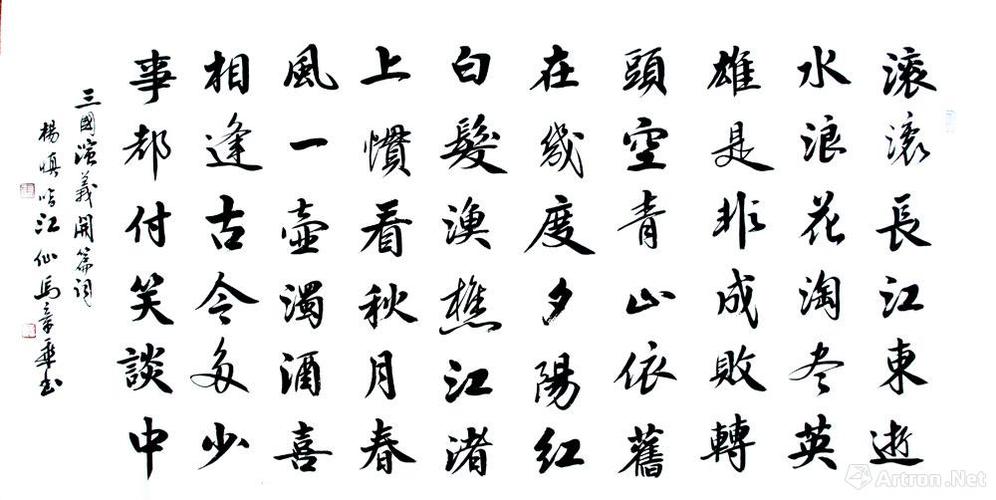 滚滚長江東逝
水浪花淘尽英
雄是非成敗轉
頭空青山依舊
在幾度夕陽红
白髮漁樵江渚
上慣看秋月春
風一壺濁酒喜
相逢古今多少
事都付笑談中
三國演義開篇词
楊慎临江仙馬章书
Artron.Net